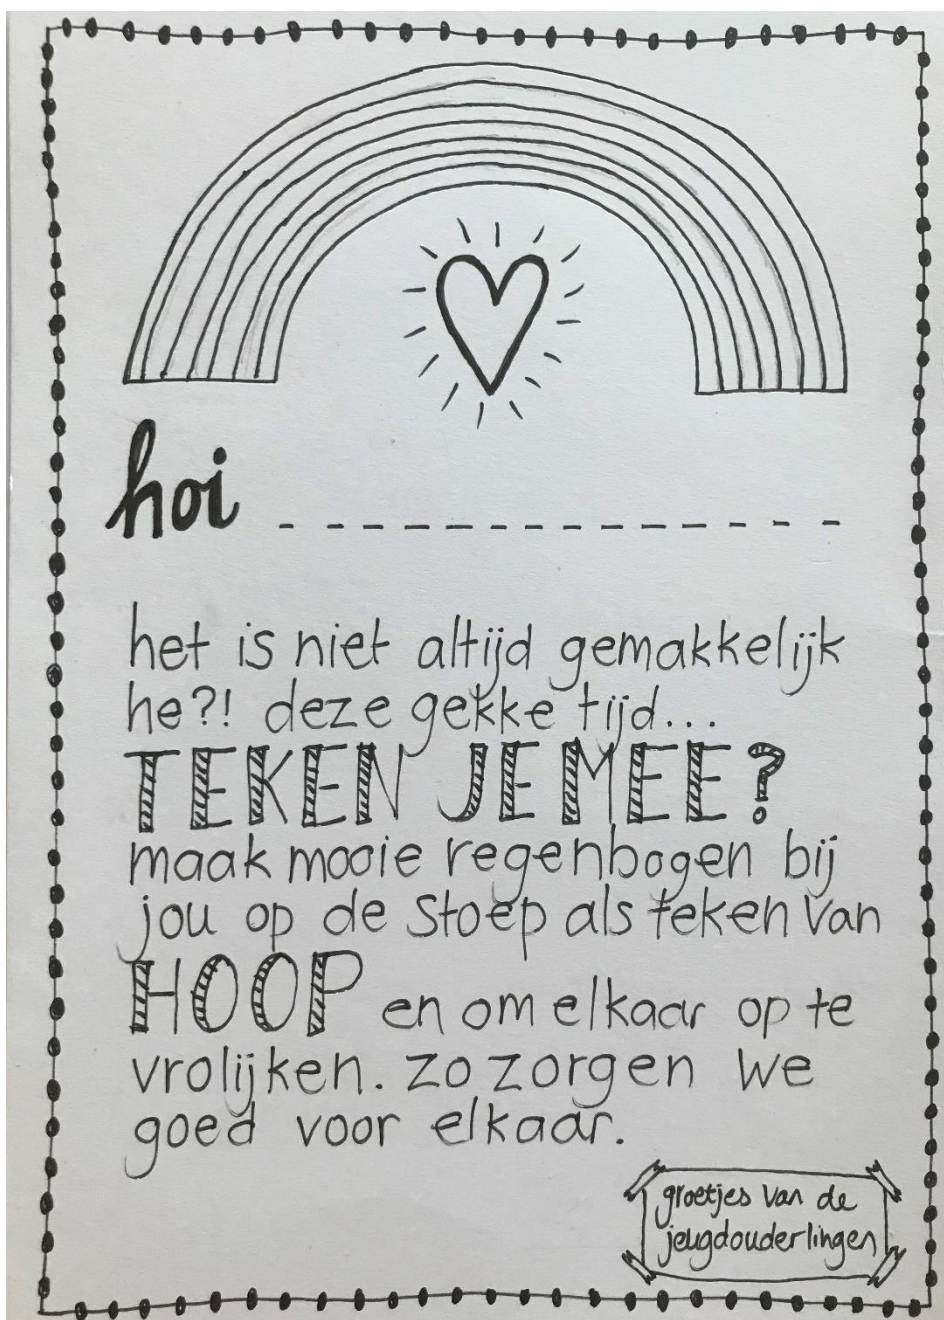 hoi
het is niet altijd gemakkelijk
he?! deze gekke tijd...
TEKEN JE MEE?
maak mooie regenbogen bij
jou op de stoep als teken van
HOOP en om elkaar op te
vrolijken. zo zorgen we
goed voor elkaar.
groetjes van de
jeugdouderlingen